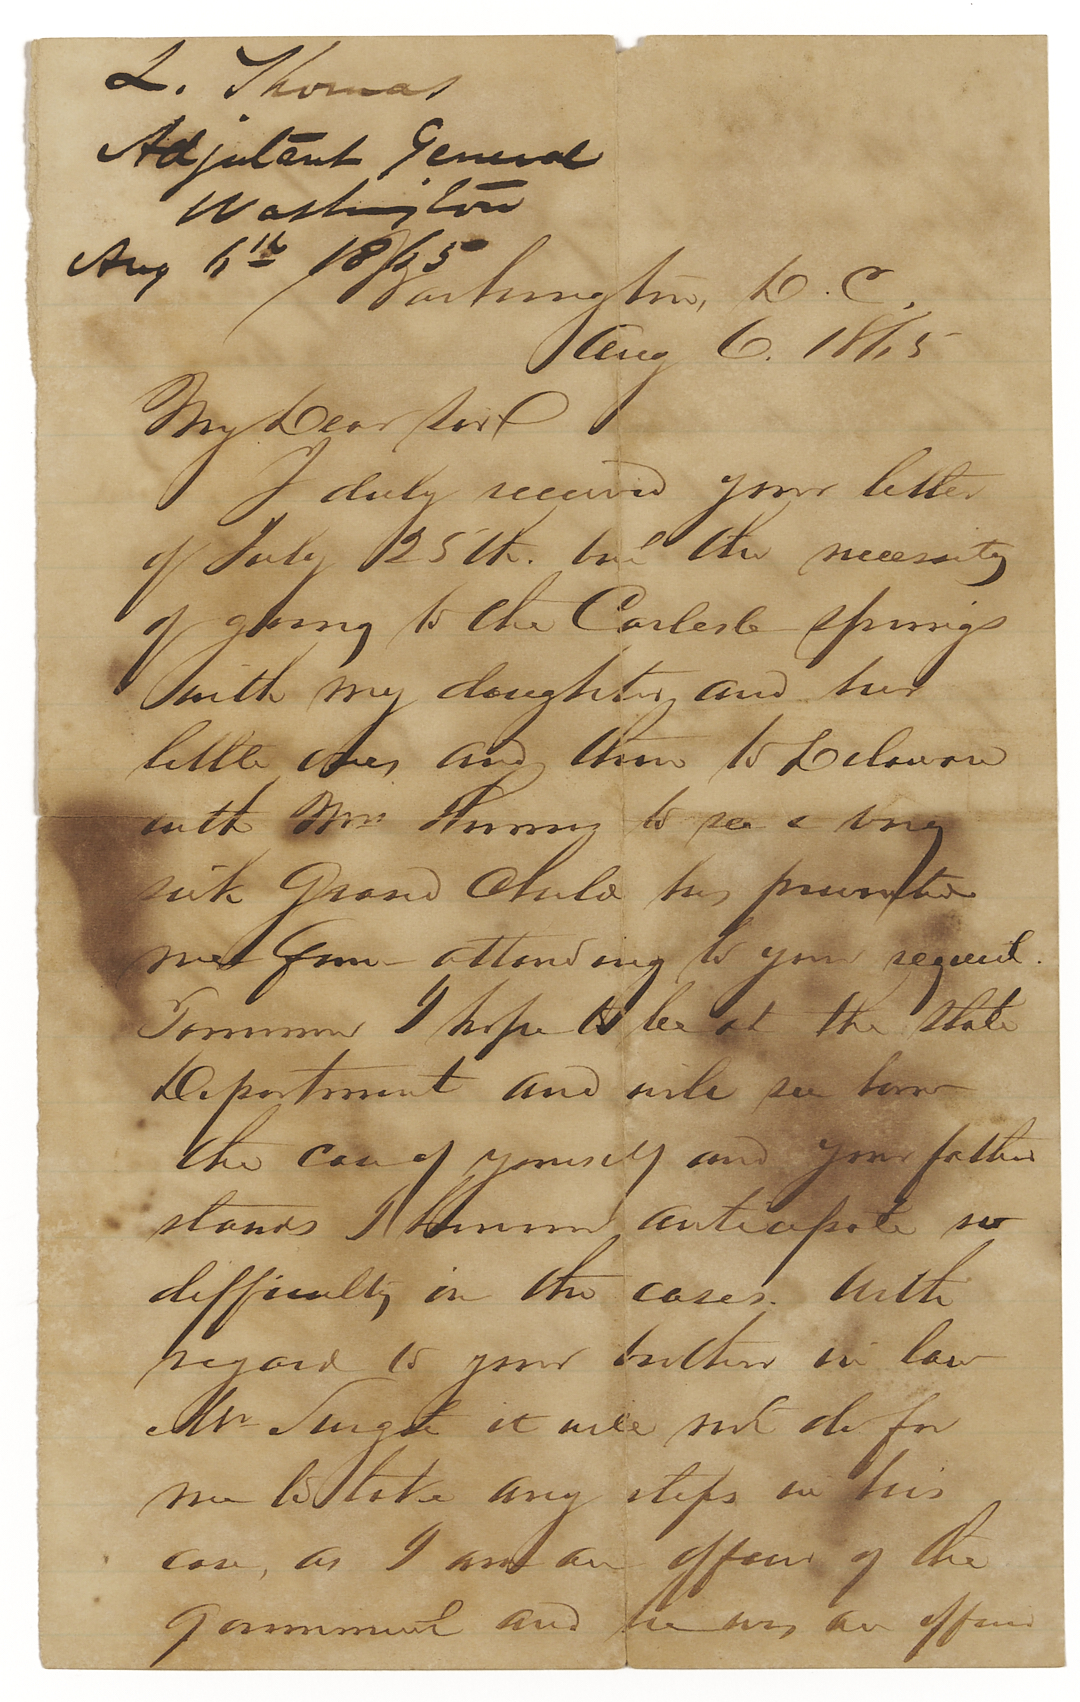 L. Thomas
Adjutant General
Washington
Aug 6th 1865
Washington, D.C.
Aug 6. 1865
My Dear Sir
I duly received your letter
of July 25th. but the necessity
of going to the Carlisle Springs
with my daughter, and her
little ones, and then to Delaware
with Mrs to see a very
sick Grand Child has prevented
me from attending to your request.
Tomorrow I hope to be at the State
Department and will see how
the case of yourself and your father
stands I anticipate no
difficulty in the cases. With
regard to your brother in law
Mr it will not do for
me to take any steps in his
case, as I am an officer of the
Government and he was an officer